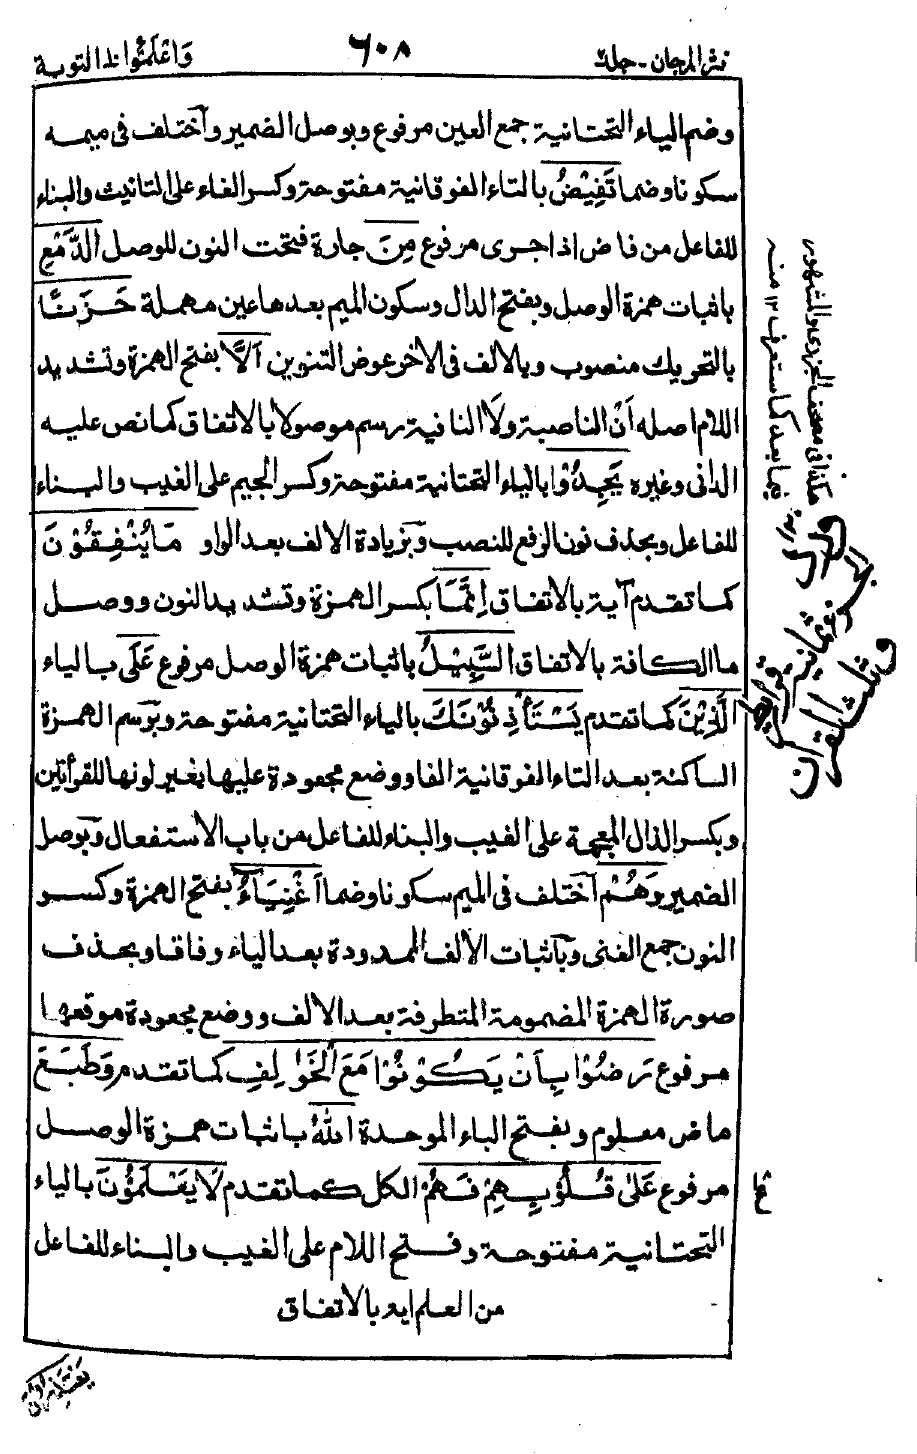 نثر المرجان - جلد٢
٦٠٨
وَاعْلَمُوْا ١٠ التوبة
وضم الياء التحتانية جمع العين مرفوع وبوصل الضمير وآختلف فى ميمه
سكونا وضما تَفِيْضُ بالتاء الفوقانية مفتوحة وكسر الفاء على التانيث والبناء
للفاعل من فاض اذا جرى مرفوع مِنَ جارة فتحت النون للوصل الدَّمْعِ
باثبات همزة الوصل وبفتح الدال وسكون الميم بعدها عين مهملة حَزَنًا
بالتحريك منصوب وبالالف فى الاخر عوض التنوين اَلَّا بفتح الهمزة وتشديد
اللام اصله اَنْ الناصبة ولَا النافية رسم موصولا بالاتفاق كما نص عليه
الدانى وغيره يَجِدُوْا بالياء التحتانية مفتوحة وكسر الجيم على الغيب والبناء
للفاعل وبحذف نون الرفع للنصب وبزيادة الالف بعد الواو مَا يُنْفِقُوْنَ
كما تقدم آية بالاتفاق اِنَّمَا بكسر الهمزة وتشديد النون ووصل
ما الكافة بالاتفاق السَّبِيْلُ باثبات همزة الوصل مرفوع عَلَى بالياء
الَّذِيْنَ كما تقدم يَسْتَأْذِنُوْنَكَ بالياء التحتانية مفتوحة وبرسم الهمزة
الساكنة بعد التاء الفوقانية الفا ووضع مجعودة عليها بغير لونها للقرأتين
وبكسر الذال المعجمة على الغيب والبناء للفاعل من باب الاستفعال وبوصل
الضمير وَهُمْ آختلف فى الميم سكونا وضما اَغْنِيَآءُ بفتح الهمزة وكسر
النون جمع الغنى وبآثبات الالف الممدودة بعد الياء وفاقا وبحذف
صورة الهمزة المضمومة المتطرفة بعد الالف ووضع مجعودة موقعها
مرفوع رَضُوْا بِاَنْ يَكُوْنُوْا مَعَ الْخَوَالِفِ كما تقدم وَطَبَعَ
ماض معلوم وبفتح الباء الموحدة اللهُ باثبات همزة الوصل
مرفوع عَلٰى قُلُوْبِهِمْ فَهُمْ الكل كما تقدم لَا يَعْلَمُوْنَ بالياء
التحتانية مفتوحة وفتح اللام على الغيب والبناء للفاعل
من العلم اية بالاتفاق
هكذا فى مصحف الجزرى والمشهور
فيما بعد كما ستعرف ١٢ منه
يعتذرون